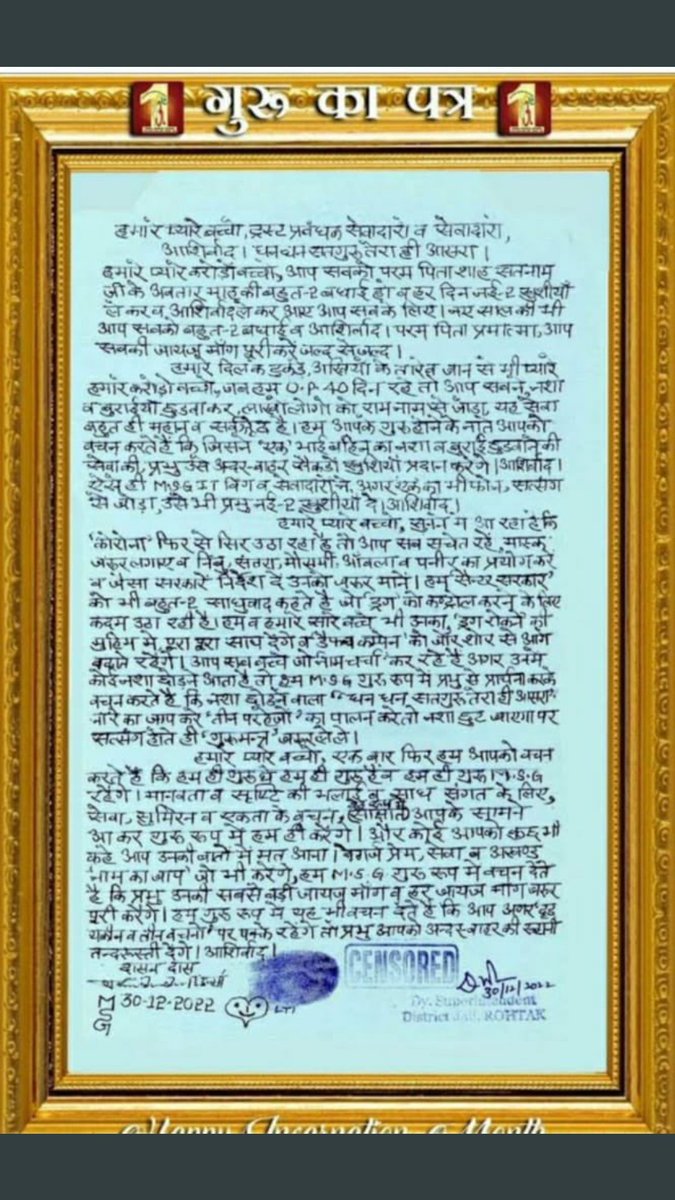 गुरु का पत्र
हमारे प्यारे बच्चो, ट्रस्ट प्रबंधक सेवादारो व सेवादारो,
आशिर्वाद। धन धन सतगुरु तेरा ही आसरा।
हमारे प्यारे करोड़ो बच्चो, आप सबको परम पिता शाह सतनाम
जी के अवतार माह की बहुत-2 बधाई हो व हर दिन नई-2 खुशीयाँ
लेकर व, आशिर्वाद लेकर आए आप सबके लिए। नए साल की भी
आप सबको बहुत-2 बधाई व आशिर्वाद। परम पिता प्रमात्मा, आप
सबकी जायज़ माँग पूरी करें जल्द से जल्द।
हमारे दिल के टुकड़े, आँखियों के तारे व जान से भी प्यारे
हमारे करोड़ो बच्चो, जब हम U.P. 40 दिन रहे तो आप सबने, नशा
व बुराईयाँ छुड़वाकर, लाखों लोगो को, राम नाम से जोड़ा, यह सेवा
बहुत ही महान व सर्वश्रेष्ठ है। हम आपके गुरु होने के नाते आपको
वचन करते हैं कि जिसने 'एक' भाई बहिन का नशा व बुराई छुड़वाने की
सेवा की, प्रभु उसे अंदर-बाहर सैकड़ों खुशियाँ प्रदान करेंगे। आशिर्वाद।
ऐसे ही M.S.G IT विंग व सेवादारों ने, अगर एक का भी फोन, सत्संग
से जोड़ा, उसे भी प्रभु नई-2 खुशीयाँ दे। आशिर्वाद।
हमारे प्यारे बच्चो, सुनने में आ रहा है कि
'कोरोना' फिर से सिर उठा रहा है तो आप सब सुचेत रहें, मास्क
जरूर लगाए व निंबू, संतरा, मौसमी, आँवला व पनीर का प्रयोग करें
व जैसा सरकारें निर्देश दे उनको जरूर मानें। हम सेन्टर सरकार
को भी बहुत-2 साधुवाद कहते है जो 'ड्रग' को कण्ट्रोल करने के लिए
कदम उठा रही है। हम व हमारे सारे बच्चे भी उनका, 'ड्रग रोकने की
मुहिम में, पूरा पूरा साथ देंगे व 'डैफ्थ कम्पेन' को जोर शोर से आगे
बढ़ाते रहेंगे। आप सब बच्चे जो नाम चर्चा कर रहे है अगर उनमें
कोई नशा छोड़ने आता है तो हम M.S.G गुरु रूप में प्रभु से प्रार्थना करके
वचन करते है, कि नशा छोड़ने वाला "धन धन सतगुरु तेरा ही आसरा"
नारे का जाप करे 'तीन परहेजो' का पालन करे तो नशा छुट जाएगा पर
सत्संग होते ही 'गुरुमन्त्र' जरूर ले लो।
हमारे प्यारे बच्चो, एक बार फिर हम आपको वचन
करते है कि हम ही गुरु थे हम ही गुरु हैं व हम ही गुरु M.S.G
रहेंगे। मानवता व सृष्टि की भलाई व, साध संगत के लिए,
सेवा, सुमिरन व एकता के वचन, साक्षात आपके सामने
आ कर गुरु रूप में हम ही करेंगे। और कोई आपको कुछ भी
कहे आप उनकी बातो में मत आना। बेगर्ज प्रेम, सेवा व अखण्ड
'नाम का जाप' जो भी करेगा, हम M.S.G गुरु रूप में वचन देते
है कि प्रभु उनकी सबसे बड़ी जायज माँग व हर जायज माँग जरूर
पूरी करेंगे। हम गुरु रूप में यह भी वचन देते है कि आप अगर दृढ़
यकीन व तीन वचनो पर पक्के रहेंगे तो प्रभु आपको अन्दर बाहर की खुशी
तन्दरूस्ती देंगे। आशिर्वाद।
दासन दास
MSG 30-12-2022
LTI
CENSORED
30/12/2022
Dy. Superintendent
District Jail, ROHTAK
Happy Incarnation Month